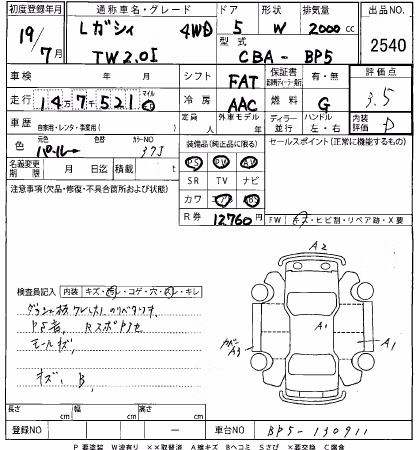 初度登録年月 通称車名・グレード ドア 形状 排気量 出品NO.
19/7月 レガシィ 4WD 5 W 2000cc 2540
TW2.0I 型式 CBA-BP5
車検 年 月 シフト FAT 保証書 有・無 評価点
走行 14万7千521 マイル 冷房 AAC 燃料 G 3.5
車歴 自家用・レンタ・事業用( ) 定員 人 外車モデル 年 ディーラー 並行 ハンドル 左・右 内装評価 D
色 パール 色替 カラーNO 37J 装備品(純正品に限る) セールスポイント(正常に機能するもの)
名義変更期限 月 日迄 積載 t PS PW AW
注意事項(欠品・修復・不具合箇所および状態) SR TV ナビ
カワ エアB ABS
R券 12760円 FW キズ・ヒビ割・リペア跡・X要
検査員記入 内装 キズ・汚レ・コゲ・穴・スレ・キレ
モールキズ,
キズ, B,
A2
A1
A3
A1
長さ cm 幅 cm 高さ cm
登録NO ー 車台NO BP5-130911
P要塗装 W波有り ××取替済 A線キズ Bヘコミ Sさび ×要交換 C腐食